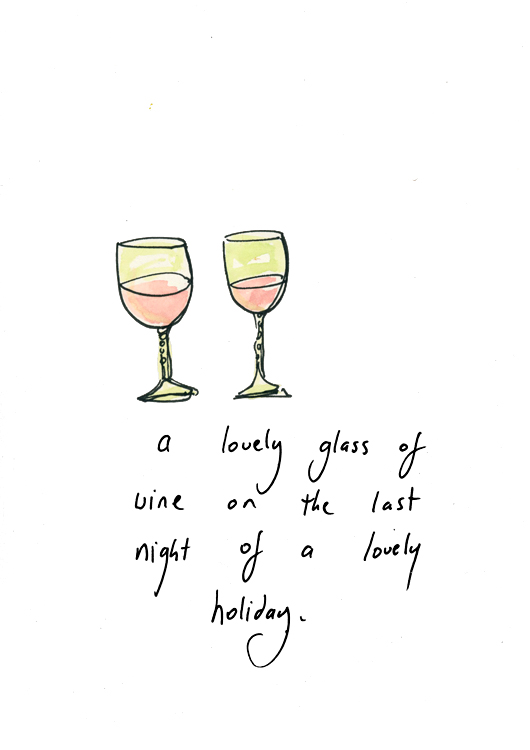 a lovely glass of
wine on the last
night of a lovely
holiday.